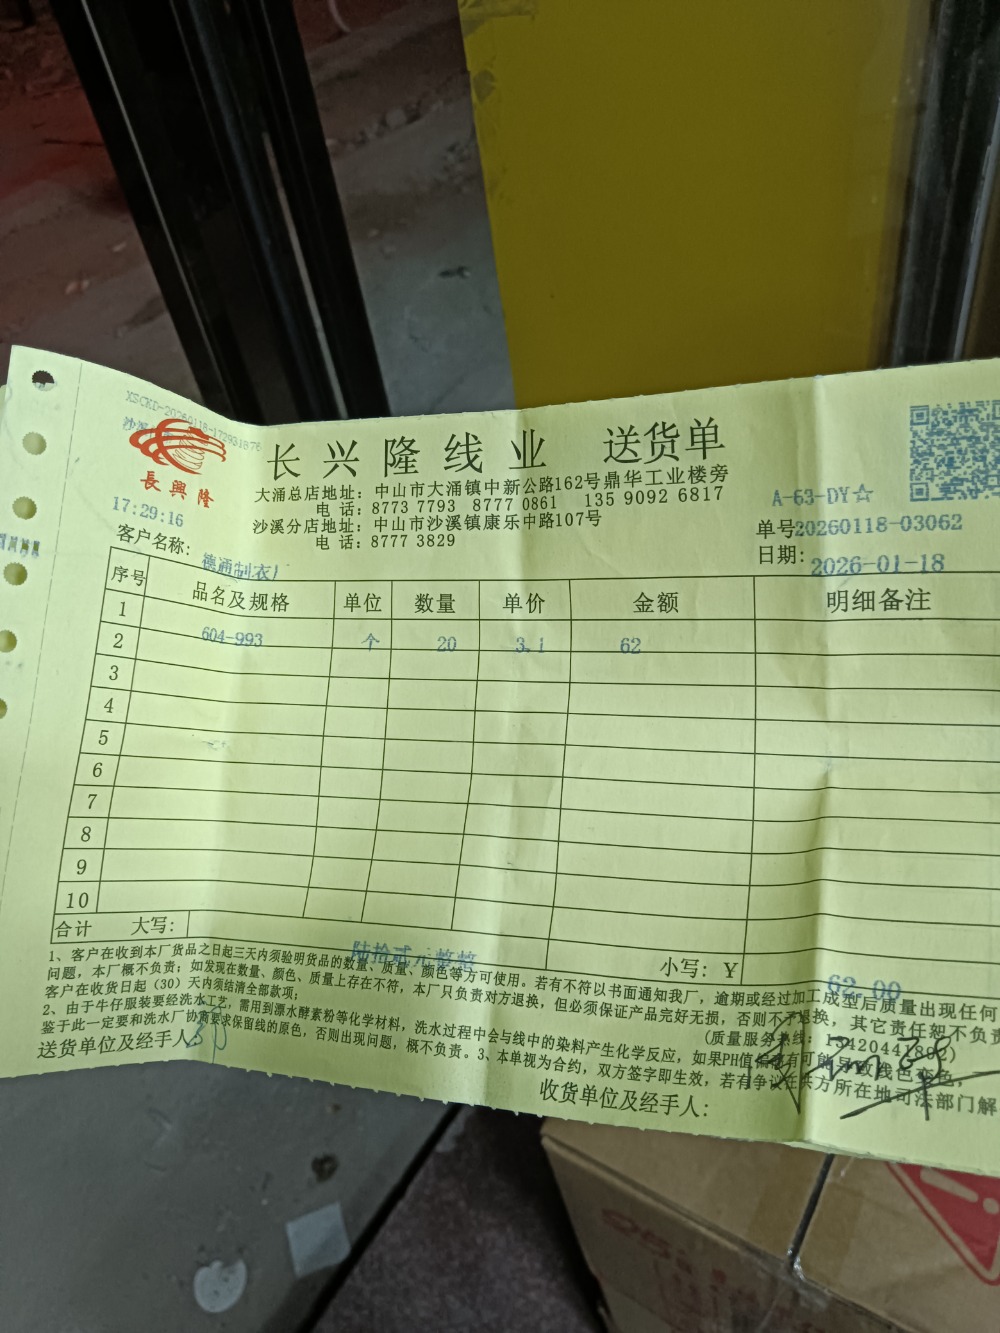 XSCKD-20260118-172931876
長興隆
长兴隆线业 送货单
大涌总店地址：中山市大涌镇中新公路162号鼎华工业楼旁
电话：8773 7793 8777 0861 135 9092 6817
沙溪分店地址：中山市沙溪镇康乐中路107号
电话：8777 3829
17:29:16
A-63-DY☆
单号20260118-03062
客户名称：德通制衣厂
日期：2026-01-18
序号 品名及规格 单位 数量 单价 金额 明细备注
1 604-993 个 20 3.1 62
2
3
4
5
6
7
8
9
10
合计 大写：陆拾贰元整 小写：￥62.00
1、客户在收到本厂货品之日起三天内须验明货品的数量、质量、颜色等方可使用。若有不符以书面通知我厂，逾期或经过加工成型后质量出现任何
问题，本厂概不负责；如发现在数量、颜色、质量上存在不符，本厂只负责对方退换，但必须保证产品完好无损，否则不予退换，其它责任恕不负责
客户在收货日起（30）天内须结清全部款项； (质量服务热线：13420441802)
2、由于牛仔服装要经洗水工艺，需用到漂水酵素粉等化学材料，洗水过程中会与线中的染料产生化学反应，如果PH值偏差有可能导致线色变色，
鉴于此一定要和洗水厂协商要求保留线的原色，否则出现问题，概不负责。3、本单视为合约，双方签字即生效，若有争议在供方所在地司法部门解
送货单位及经手人：
收货单位及经手人：